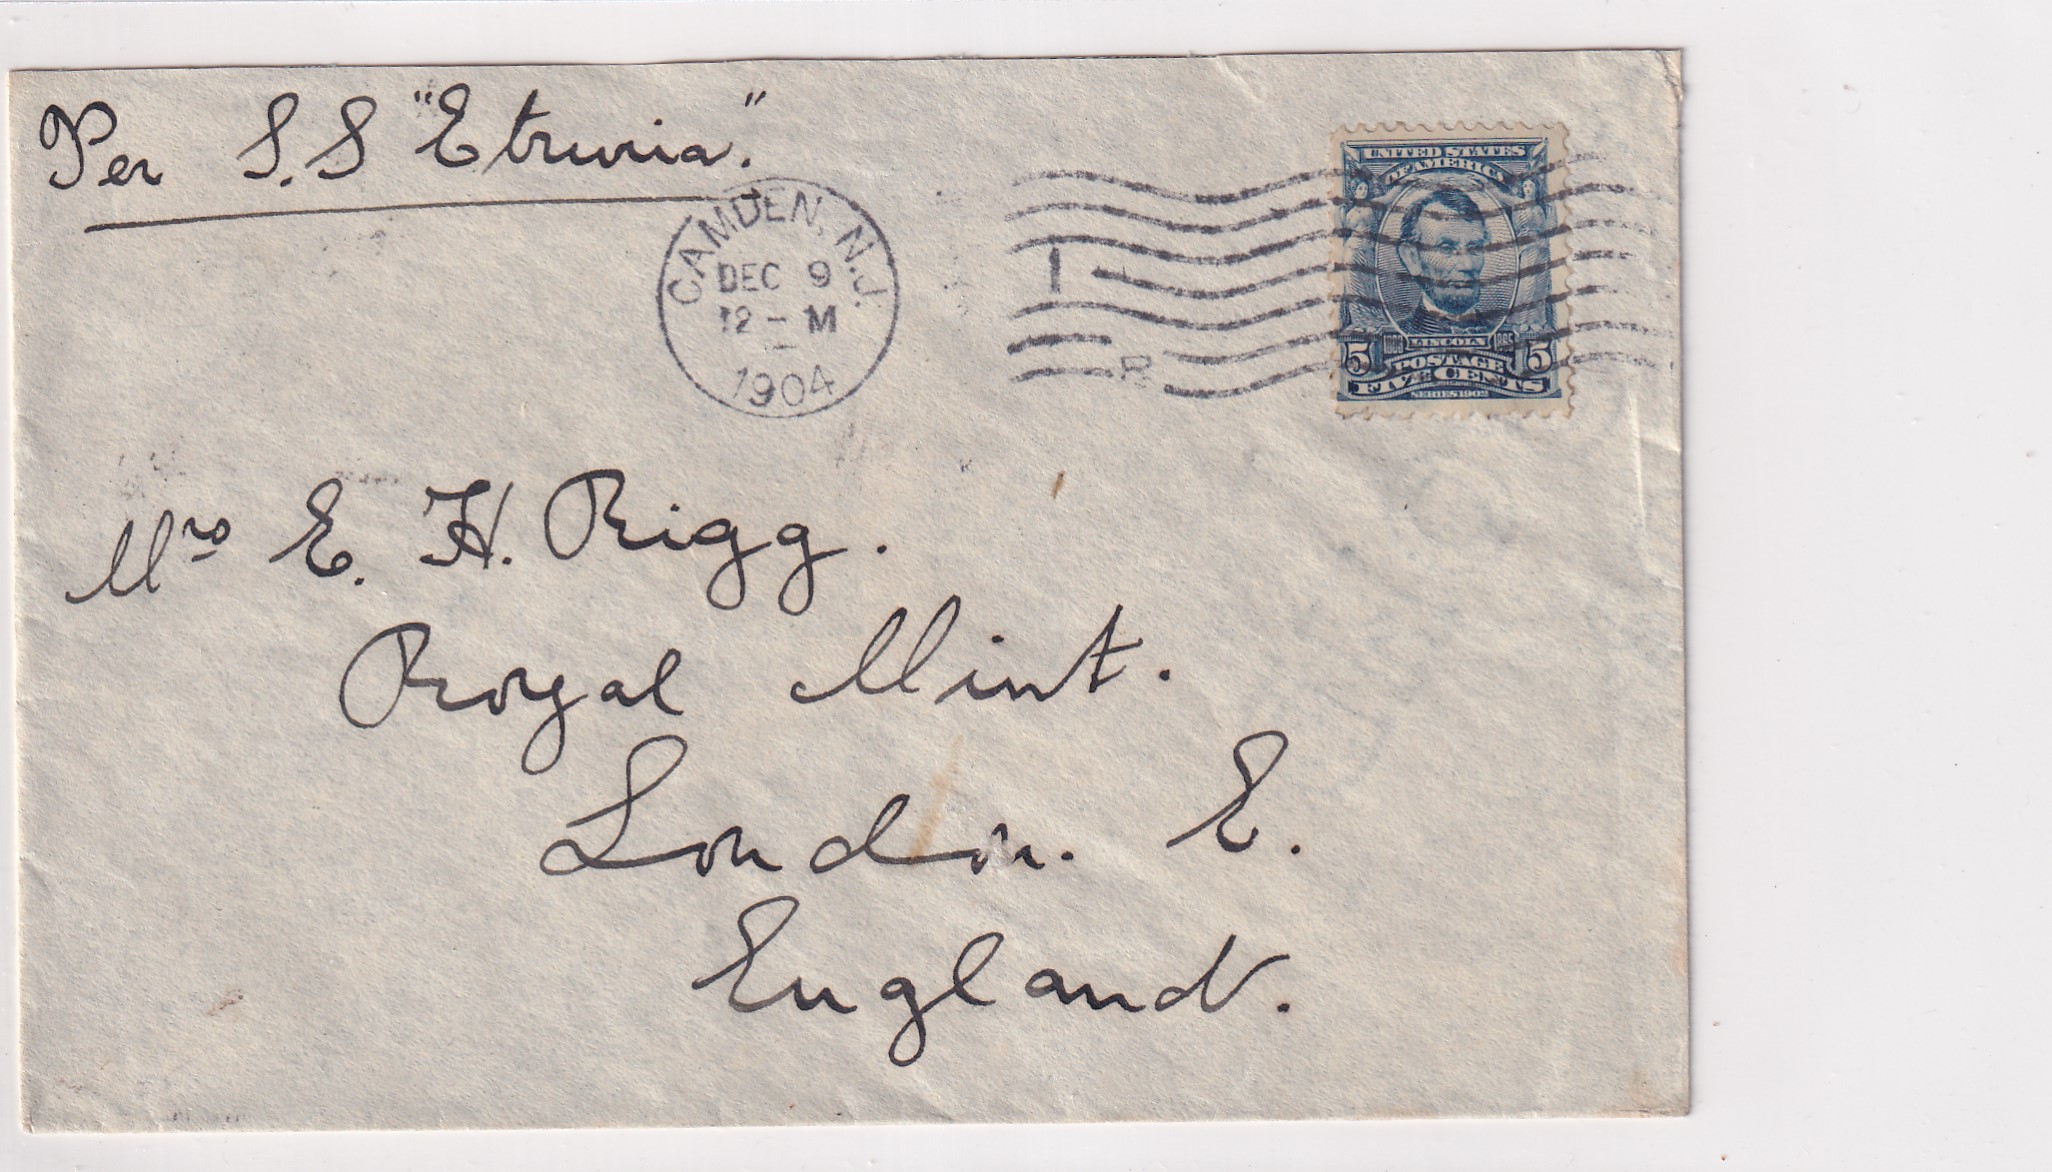 Per S.S "Etruria."
CAMDEN, N.J.
DEC 9
12 - M
1904
1
UNITED STATES
OF AMERICA
LINCOLN
5 POSTAGE 5
FIVE CENTS
SERIES 1902
Mrs E. H. Rigg.
Royal Mint.
London. E.
England.